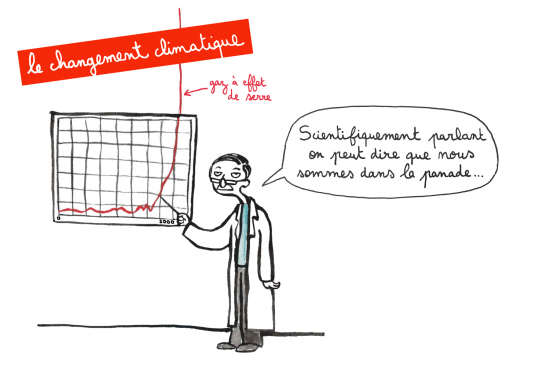 le changement climatique
gaz à effet
de serre
Scientifiquement parlant
on peut dire que nous
sommes dans la panade...
0
1000